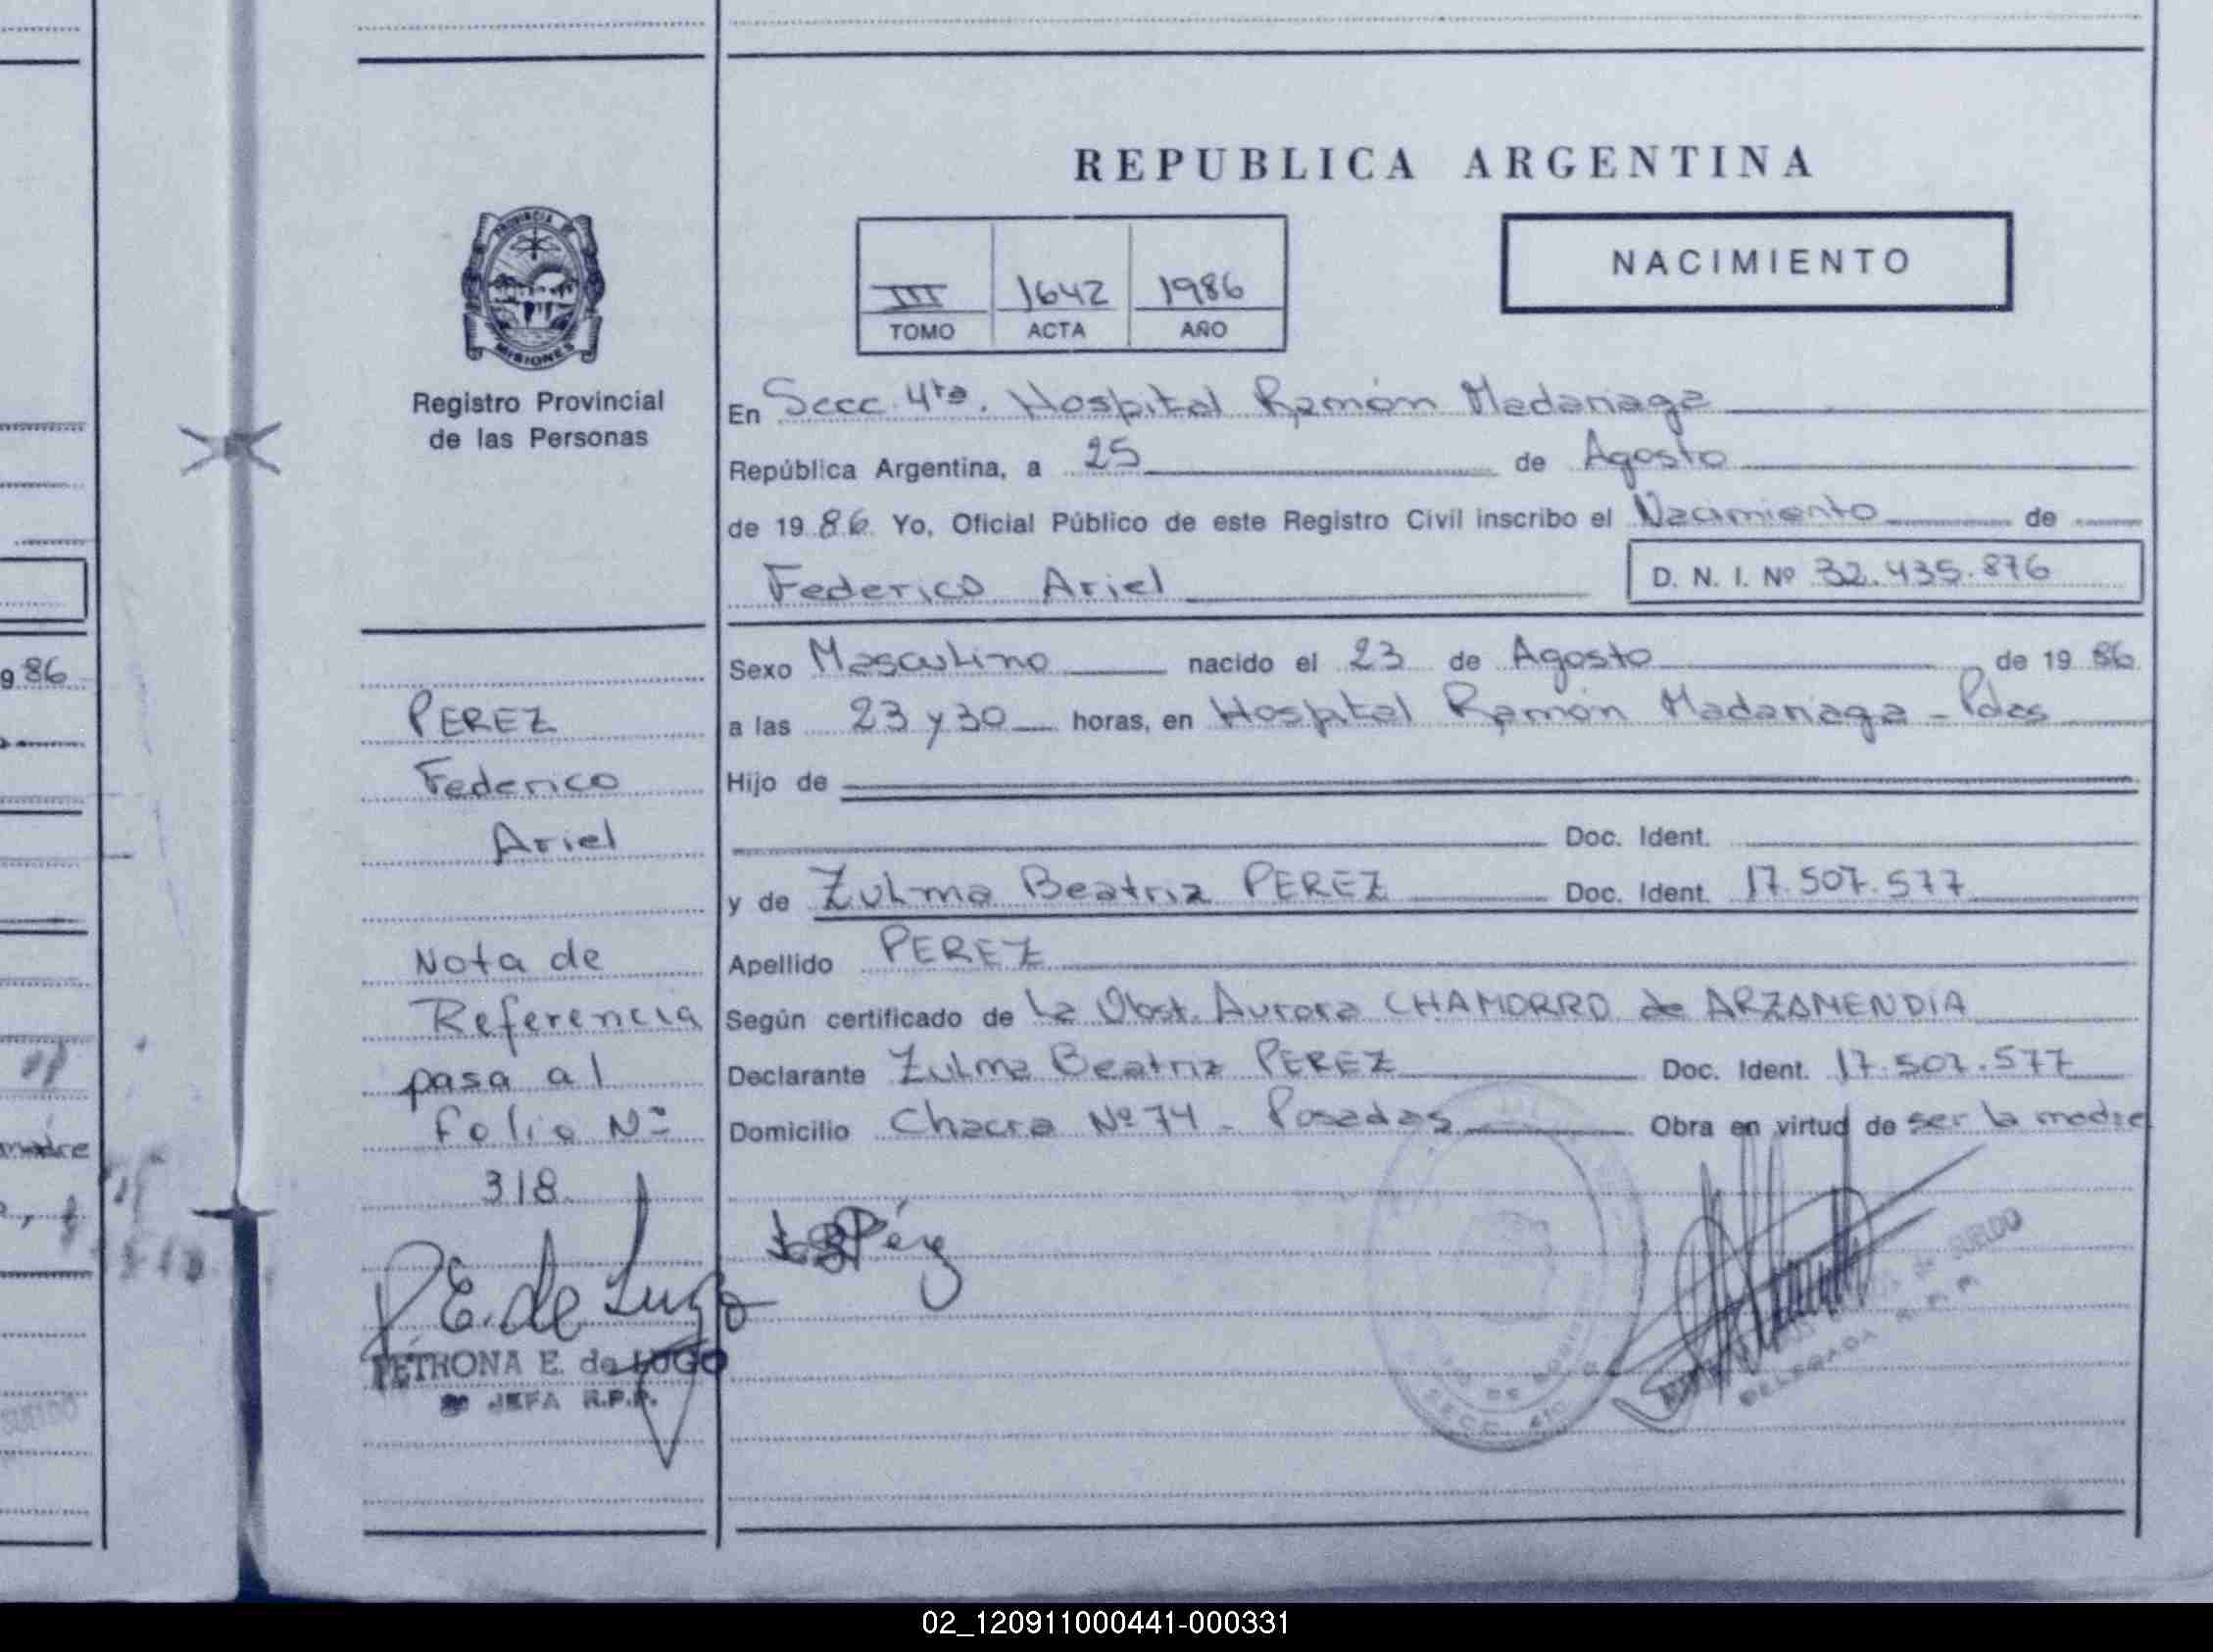 REPUBLICA ARGENTINA
NACIMIENTO
III 1642 1986
TOMO ACTA AÑO
PROVINCIA DE
MISIONES
Registro Provincial
de las Personas
En Secc 4ta. Hospital Ramón Madariaga
República Argentina, a 25 de Agosto
de 1986. Yo, Oficial Público de este Registro Civil inscribo el Nacimiento de
Federico Ariel
D. N. I. Nº 32.435.876
Sexo Masculino nacido el 23 de Agosto de 1986
a las 23 y 30 horas, en Hospital Ramón Madariaga - Pdas
Hijo de
Doc. Ident.
y de Zulma Beatriz PEREZ Doc. Ident. 17.507.577
Apellido PEREZ
Según certificado de la Obst. Aurora CHAMORRO de ARZAMENDIA
Declarante Zulma Beatriz PEREZ Doc. Ident. 17.507.577
Domicilio Chacra Nº 74 - Posadas Obra en virtud de ser la madre
PEREZ
Federico
Ariel
Nota de
Referencia
pasa al
folio Nº
318
P E. de Lugo
PETRONA E. de LUGO
JEFA R.P.P.
SECC. 4ta
de SUELDO
DELEGADA R.P.P.
986
madre
02_120911000441-000331